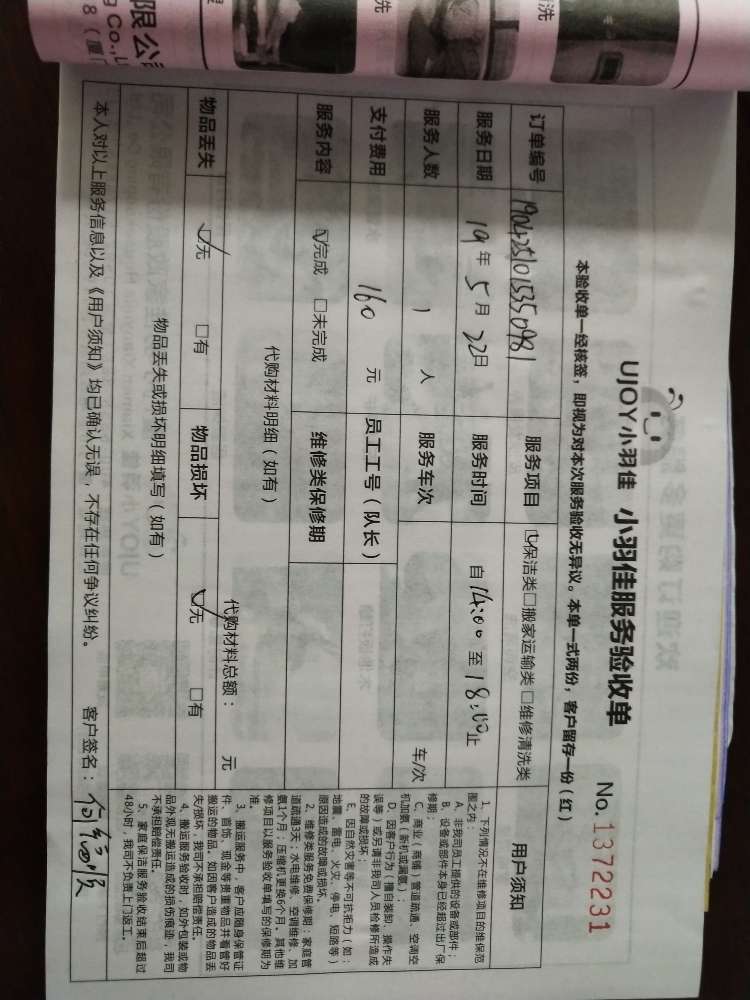 UJOY小羽佳 小羽佳服务验收单 No. 1372231
本验收单一经核签，即视为对本次服务验收无异议。本单一式两份，客户留存一份（红）
订单编号 1904251015350981 服务项目 ☑保洁类□搬家运输类□维修清洗类
服务日期 19年5月22日 服务时间 自14:00至18:00止
服务人数 1 人 服务车次 车/次
支付费用 160 元 员工工号（队长）
服务内容 ☑完成 □未完成 维修类保修期
代购材料明细（如有）
代购材料总额： 元
物品丢失 ☑无 □有 物品损坏 ☑无 □有
物品丢失或损坏明细填写（如有）
本人对以上服务信息以及《用户须知》均已确认无误，不存在任何争议纠纷。 客户签名：
用户须知
1、下列情况不在维修项目的维保范
围之内：
A、非我司员工提供的设备或部件；
B、设备或部件本身已经超过出厂保
修期；
C、商业（商铺）管道疏通、空调空
机加氨（新机或漏氨）；
D、因客户行为（擅自装卸、操作失
误等）或另请非我司人员检修所造成
的故障或损坏；
E、因自然灾害等不可抗拒力（如：
地震、雷电、水灾、停电、短路等）
原因造成的故障或损坏。
2、维修类服务免费保修期：家庭管
道疏通3天；水电维修、空调维修、加
氨1个月；压缩机更换6个月。其他维
修项目以服务验收单填写的保修期为
准。
3、搬运服务中，客户应随身保管证
件、首饰、现金等贵重物品并看管好
搬运的物品，如因客户造成的物品丢
失/损坏，我司不承担赔偿责任。
4、搬运服务验收时，如外包装或物
品外观无搬运造成的损伤痕迹，我司
不承担赔偿责任。
5、家庭保洁服务验收结束后超过
48小时，我司不负责上门返工。
限公
g Co.,L
8（厦门
洗